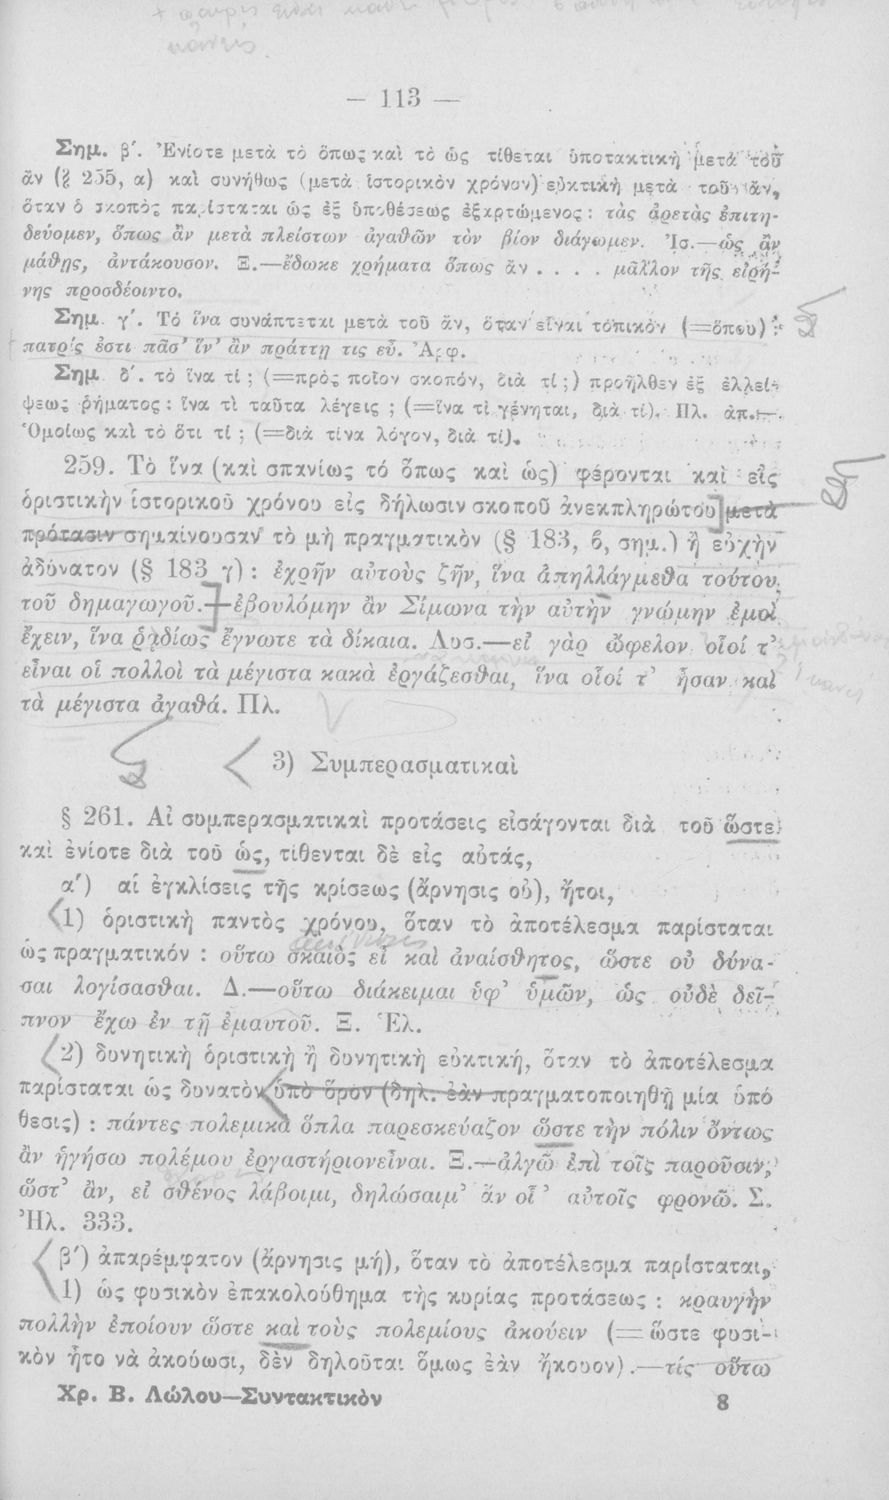 — 113 —
Σημ. β΄. Ἐνίοτε μετὰ τὸ ὅπως καὶ τὸ ὡς τίθεται ὑποτακτικὴ μετὰ τοῦ
ἄν (§ 255, α) καὶ συνήθως (μετὰ ἱστορικὸν χρόνον) εὐκτικὴ μετὰ τοῦ ἄν,
ὅταν ὁ σκοπὸς παρίσταται ὡς ἐξ ὑποθέσεως ἐξαρτώμενος : τὰς ἀρετὰς ἐπιτη-
δεύομεν, ὅπως ἂν μετὰ πλείστων ἀγαθῶν τὸν βίον διάγωμεν. Ἰσ.—ὡς ἂν
μάθῃς, ἀντάκουσον. Ξ.—ἔδωκε χρήματα ὅπως ἂν . . . . μᾶλλον τῆς εἰρή-
νης προσδέοιντο.
Σημ. γ΄. Τὸ ἵνα συνάπτεται μετὰ τοῦ ἄν, ὅταν εἶναι τοπικὸν (=ὅπου) :
πατρίς ἐστι πᾶσ’ ἵν’ ἂν πράττῃ τις εὖ. Ἀρφ.
Σημ. δ΄. τὸ ἵνα τί ; (=πρὸς ποῖον σκοπόν, διὰ τί ;) προῆλθεν ἐξ ἐλλεί-
ψεως ῥήματος : ἵνα τὶ ταῦτα λέγεις ; (=ἵνα τὶ γένηται, διὰ τί). Πλ. ἀπ.—
Ὁμοίως καὶ τὸ ὅτι τί ; (=διὰ τίνα λόγον, διὰ τί).
259. Τὸ ἵνα (καὶ σπανίως τό ὅπως καὶ ὡς) φέρονται καὶ εἰς
ὁριστικὴν ἱστορικοῦ χρόνου εἰς δήλωσιν σκοποῦ ἀνεκπληρώτου μετὰ
πρότασιν σημαίνουσαν τὸ μὴ πραγματικὸν (§ 183, 6, σημ.) ἢ εὐχὴν
ἀδύνατον (§ 183 γ) : ἐχρῆν αὐτοὺς ζῆν, ἵνα ἀπηλλάγμεθα τούτου
τοῦ δημαγωγοῦ.—ἐβουλόμην ἂν Σίμωνα τὴν αὐτὴν γνώμην ἐμοὶ
ἔχειν, ἵνα ῥᾳδίως ἔγνωτε τὰ δίκαια. Λυσ.—εἰ γὰρ ὤφελον οἷοί τ’
εἶναι οἱ πολλοὶ τὰ μέγιστα κακὰ ἐργάζεσθαι, ἵνα οἷοί τ’ ἦσαν καὶ
τὰ μέγιστα ἀγαθά. Πλ.
3) Συμπερασματικαὶ
§ 261. Αἱ συμπερασματικαὶ προτάσεις εἰσάγονται διὰ τοῦ ὥστε
καὶ ἐνίοτε διὰ τοῦ ὡς, τίθενται δὲ εἰς αὐτάς,
α΄) αἱ ἐγκλίσεις τῆς κρίσεως (ἄρνησις οὐ), ἤτοι,
1) ὁριστικὴ παντὸς χρόνου, ὅταν τὸ ἀποτέλεσμα παρίσταται
ὡς πραγματικόν : οὕτω σκαιὸς εἶ καὶ ἀναίσθητος, ὥστε οὐ δύνα-
σαι λογίσασθαι. Δ.—οὕτω διάκειμαι ὑφ’ ὑμῶν, ὡς οὐδὲ δεῖ-
πνον ἔχω ἐν τῇ ἐμαυτοῦ. Ξ. Ἑλ.
2) δυνητικὴ ὁριστικὴ ἢ δυνητικὴ εὐκτική, ὅταν τὸ ἀποτέλεσμα
παρίσταται ὡς δυνατὸν ὑπὸ ὅρον (δηλ. ἐὰν πραγματοποιηθῇ μία ὑπό
θεσις) : πάντες πολεμικὰ ὅπλα παρεσκεύαζον ὥστε τὴν πόλιν ὄντως
ἂν ἡγήσω πολέμου ἐργαστήριονεἶναι. Ξ.—ἀλγῶ ἐπὶ τοῖς παροῦσιν,
ὥστ’ ἄν, εἰ σθένος λάβοιμι, δηλώσαιμ’ ἂν οἷ’ αὐτοῖς φρονῶ. Σ.
Ἠλ. 333.
β΄) ἀπαρέμφατον (ἄρνησις μή), ὅταν τὸ ἀποτέλεσμα παρίσταται,
1) ὡς φυσικὸν ἐπακολούθημα τῆς κυρίας προτάσεως : κραυγὴν
πολλὴν ἐποίουν ὥστε καὶ τοὺς πολεμίους ἀκούειν (=ὥστε φυσι-
κὸν ἦτο νὰ ἀκούωσι, δὲν δηλοῦται ὅμως ἐὰν ἤκουον).—τίς οὕτω
Χρ. Β. Λώλου—Συντακτικὸν 8